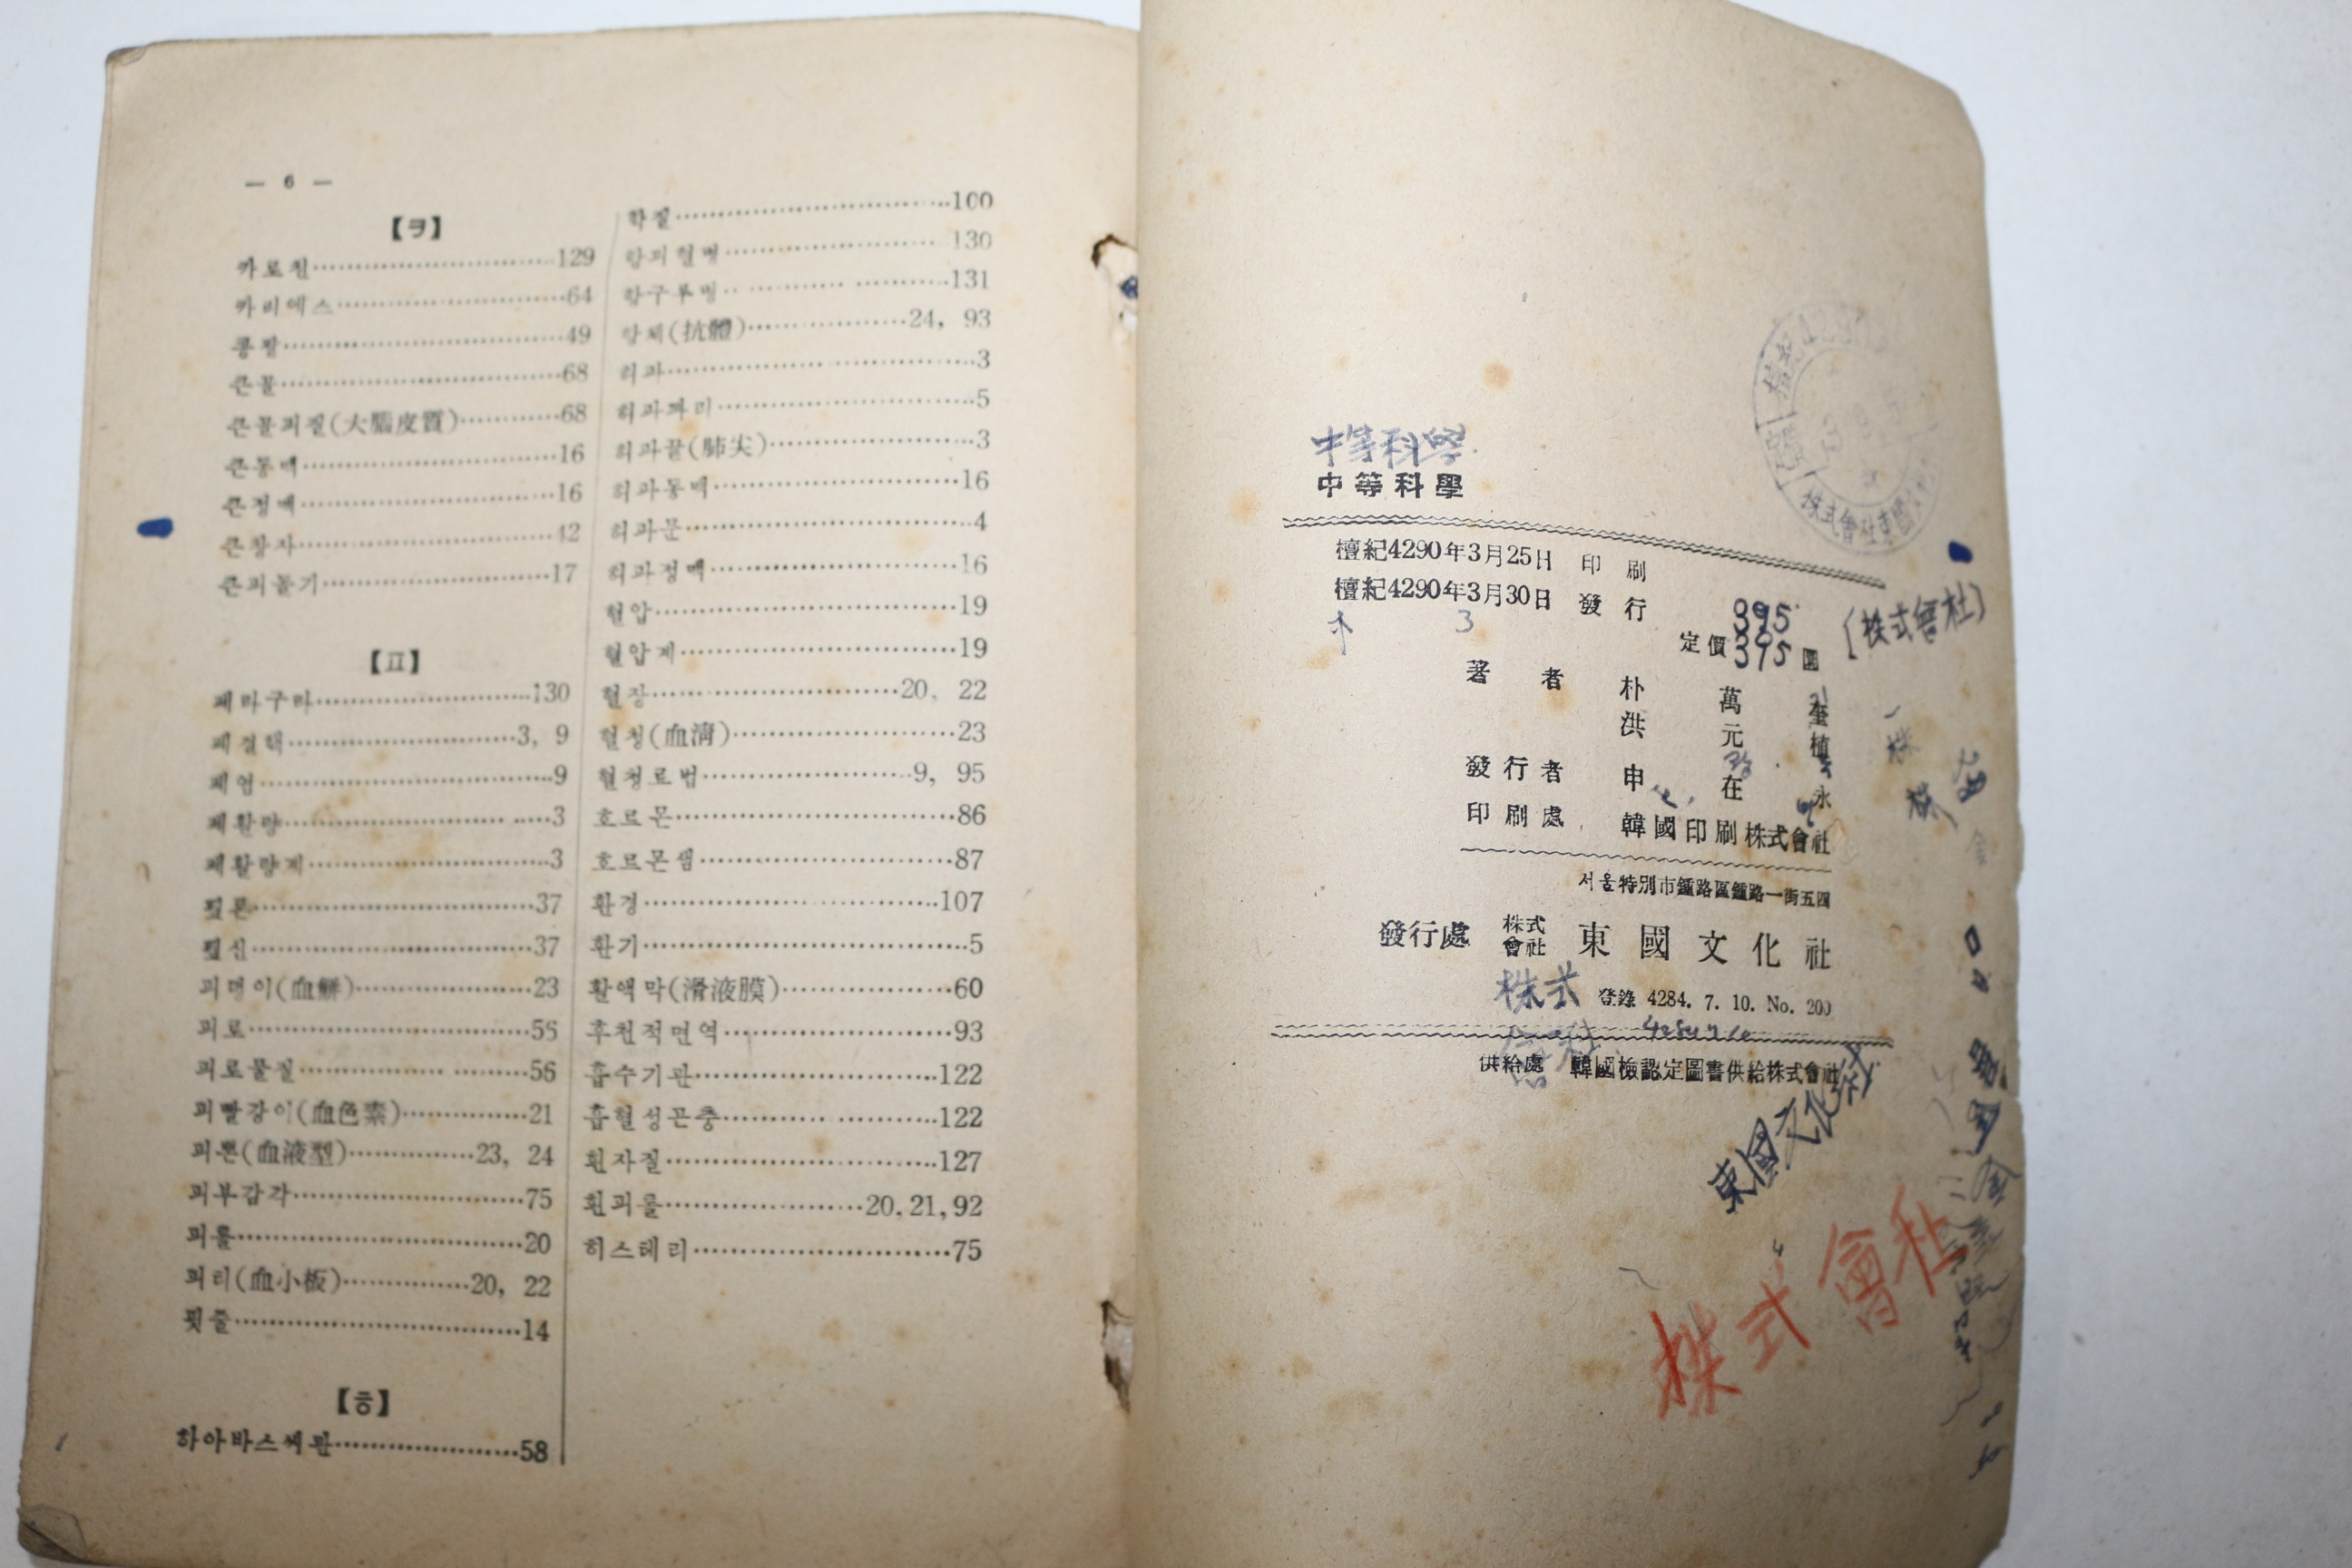 — 6 —
【ㅋ】
카로친 129
카리에스 64
콩팥 49
큰골 68
큰골피질(大腦皮質) 68
큰동맥 16
큰정맥 16
큰창자 42
큰피돌기 17
【ㅍ】
페라구라 130
폐결핵 3, 9
폐렴 9
폐활량 3
폐활량계 3
펩톤 37
펩신 37
피멍이(血餠) 23
피로 56
피로물질 56
피빨강이(血色素) 21
피본(血液型) 23, 24
피부감각 75
피톨 20
피티(血小板) 20, 22
핏줄 14
【ㅎ】
하아바스씨관 58
학질 100
항피혈병 130
항구루병 131
항체(抗體) 24, 93
허파 3
허파파리 5
허파끝(肺尖) 3
허파동맥 16
허파문 4
허파정맥 16
혈압 19
혈압계 19
혈장 20, 22
혈청(血淸) 23
혈청료법 9, 95
호르몬 86
호르몬샘 87
환경 107
환기 5
활액막(滑液膜) 60
후천적면역 93
흡수기관 122
흡혈성곤충 122
흰자질 127
흰피톨 20, 21, 92
히스테리 75
中等科學
中等科學
檀紀4290年3月25日 印刷
檀紀4290年3月30日 發行
3
395
定價 395 圜
[株式會社]
著者 朴萬奎
洪元植
發行者 申在永
印刷處 韓國印刷株式會社
서울特別市鍾路區鍾路一街五四
發行處 株式會社 東國文化社
株式
登錄 4284. 7. 10. No. 200
供給處 韓國檢認定圖書供給株式會社
東國文化社
株式會社